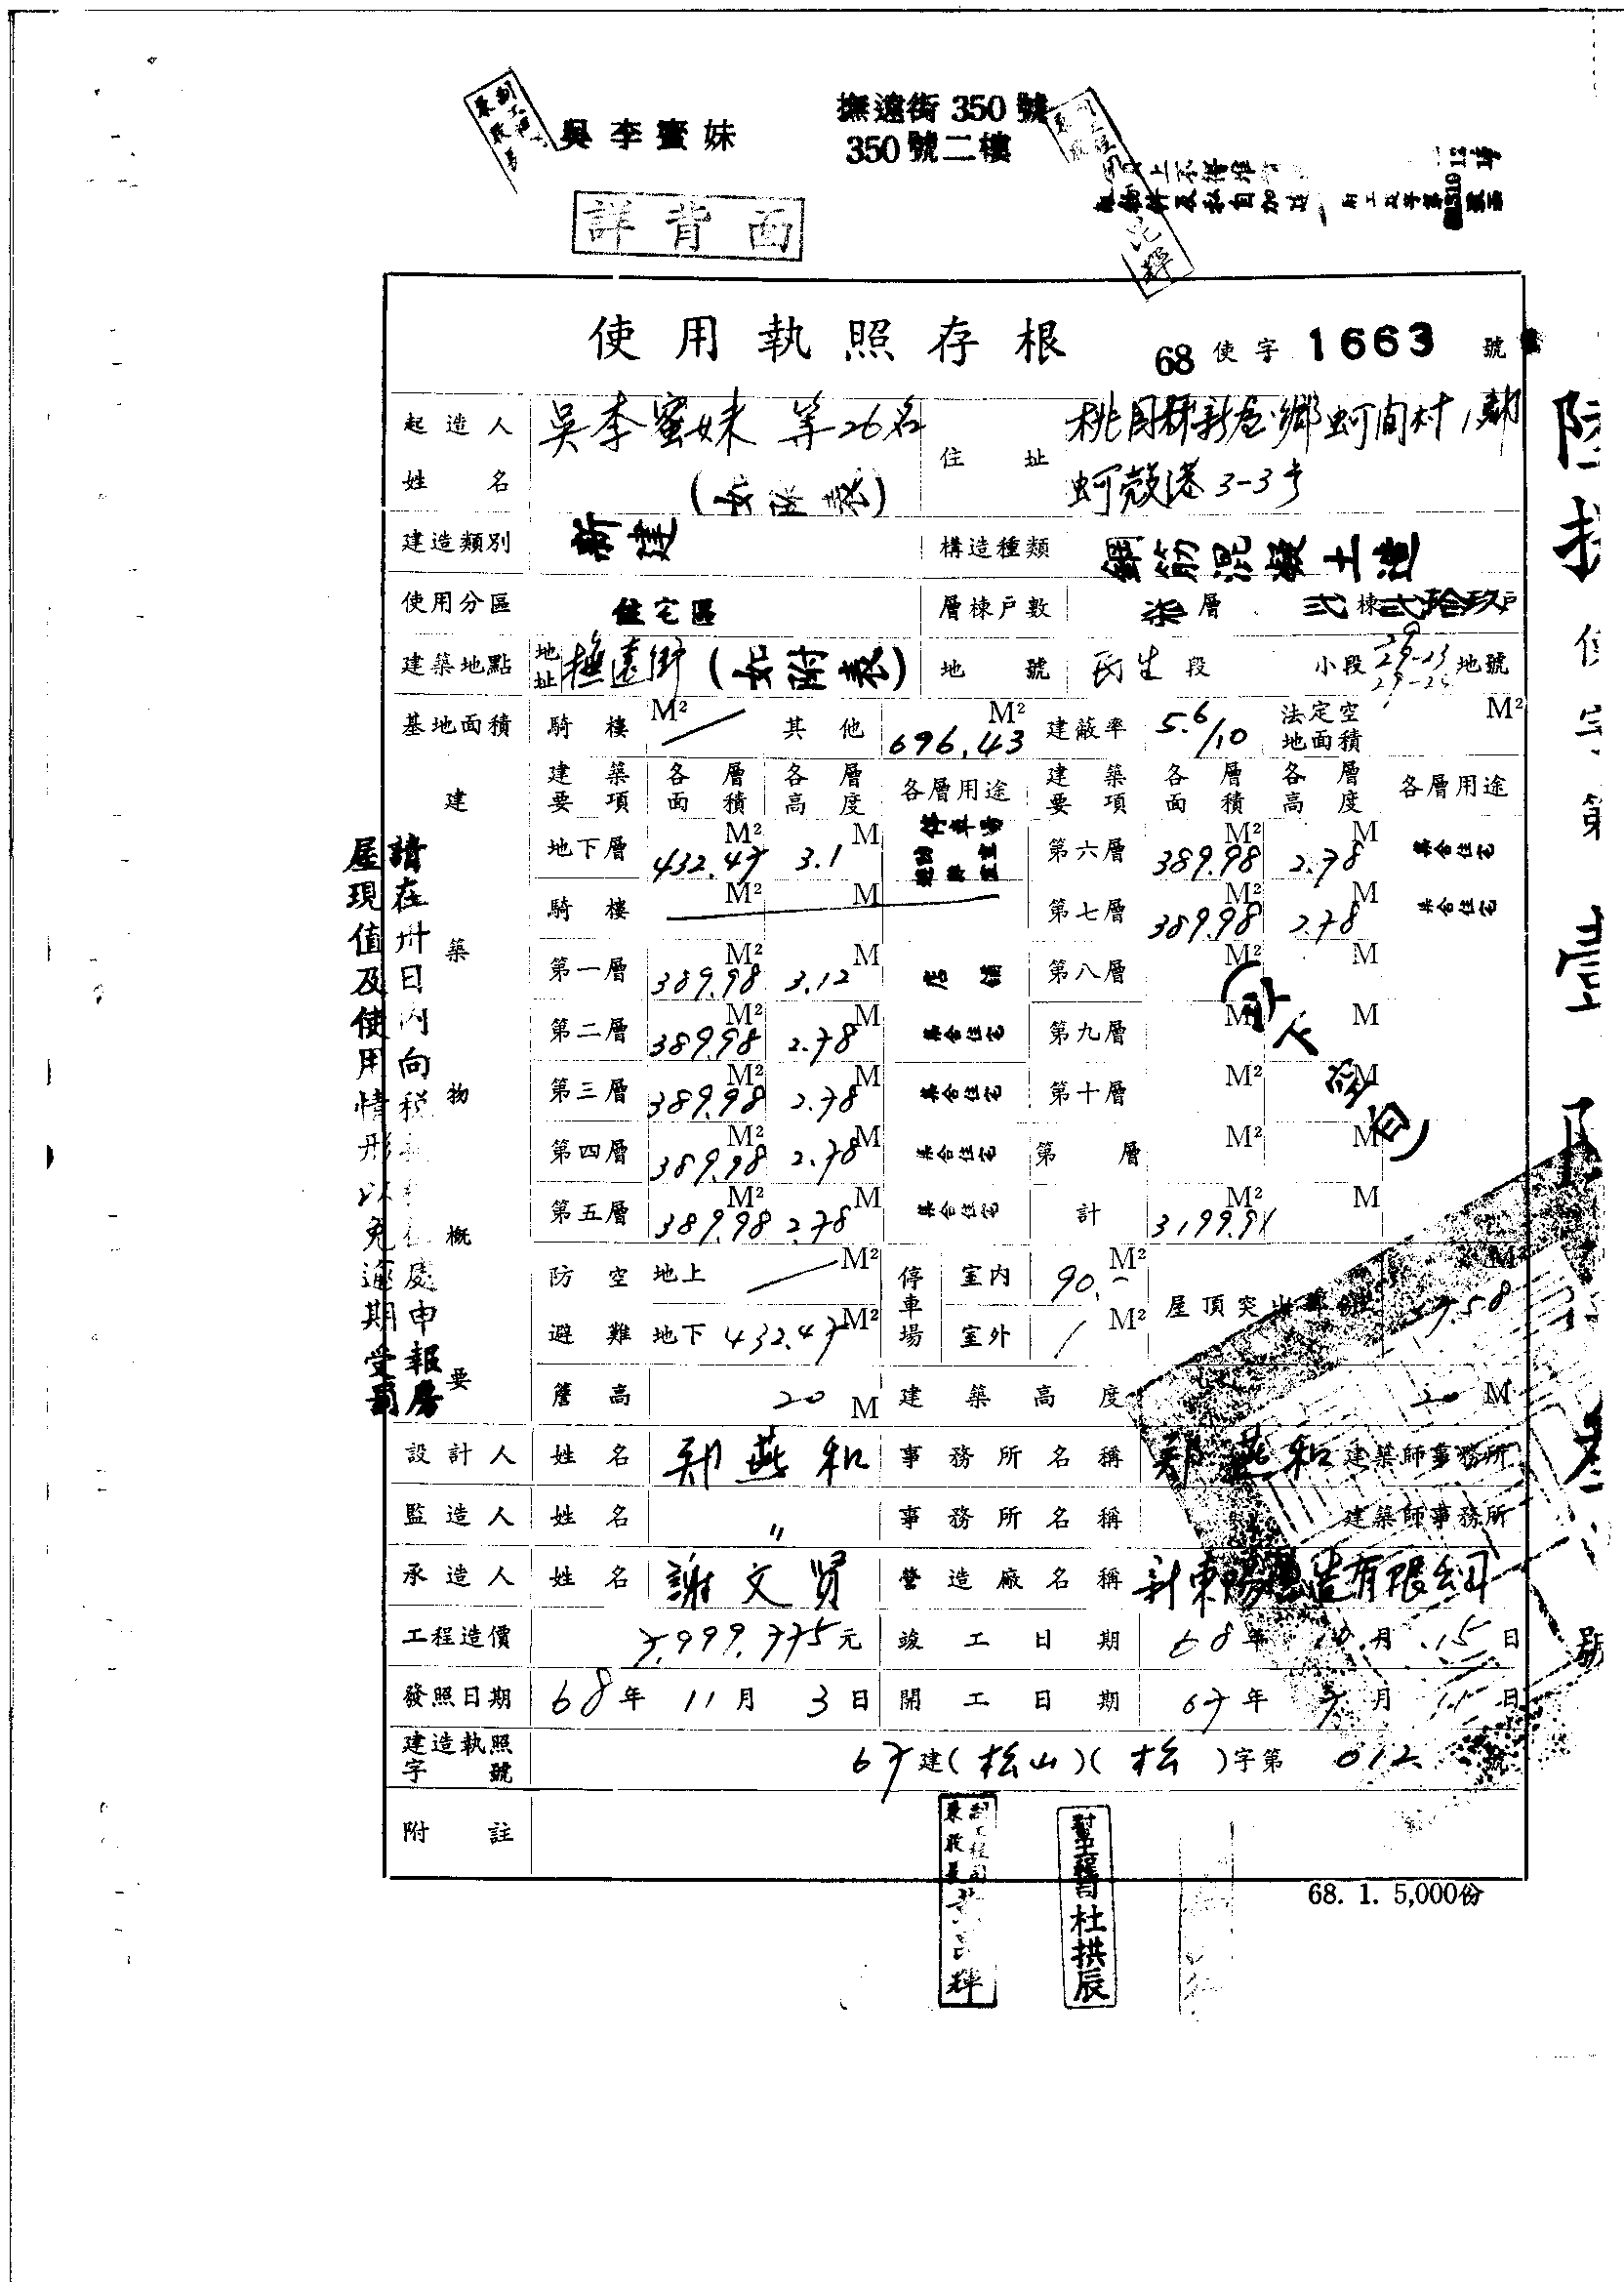 吳李蜜妹
撫遠街350號
350號二樓
詳背面
使用執照存根 68使字1663號
起造人姓名 吳李蜜妹 等26名 (如附表) 住址 桃園縣新屋鄉蚵間村1鄰蚵殼港3-3号
建造類別 新建 構造種類 鋼筋混凝土造
使用分區 住宅區 層棟戶數 柒層 弍棟弍拾玖戶
建築地點 地址 撫遠街(如附表) 地號 民生段 小段 29 29-23 29-25 地號
基地面積 騎樓 M² 其他 696.43 M² 建蔽率 5.6/10 法定空地面積 M²
建築物概要
建築要項 各層面積 各層高度 各層用途 建築要項 各層面積 各層高度 各層用途
地下層 432.47 M² 3.1 M 停車場 第六層 389.98 M² 2.78 M 集合住宅
騎樓 M² M 第七層 389.98 M² 2.78 M 集合住宅
第一層 389.98 M² 3.12 M 店舖 第八層 M² M
第二層 389.98 M² 2.78 M 集合住宅 第九層 M² M
第三層 389.98 M² 2.78 M 集合住宅 第十層 M² M
(以下空白)
第四層 389.98 M² 2.78 M 集合住宅 第 層 M² M
第五層 389.98 M² 2.78 M 集合住宅 計 3199.91 M² M
防空避難 地上 M² 停車場 室內 90.- M² 屋頂突出 M²
地下 432.47 M² 室外 / M²
簷高 20 M 建築高度 20 M
設計人 姓名 郑燕和 事務所名稱 郑燕和 建築師事務所
監造人 姓名 〃 事務所名稱 建築師事務所
承造人 姓名 謝文賢 營造廠名稱 新東陽營造有限公司
工程造價 7,999,775元 竣工日期 68年10月15日
發照日期 68年11月3日 開工日期 67年7月11日
建造執照字號 67建(松山)(松)字第012號
附註
請在卅日內向稅 處申報房
屋現值及使用情形以免逾期受罰
幫工程司杜拱辰
68. 1. 5,000份